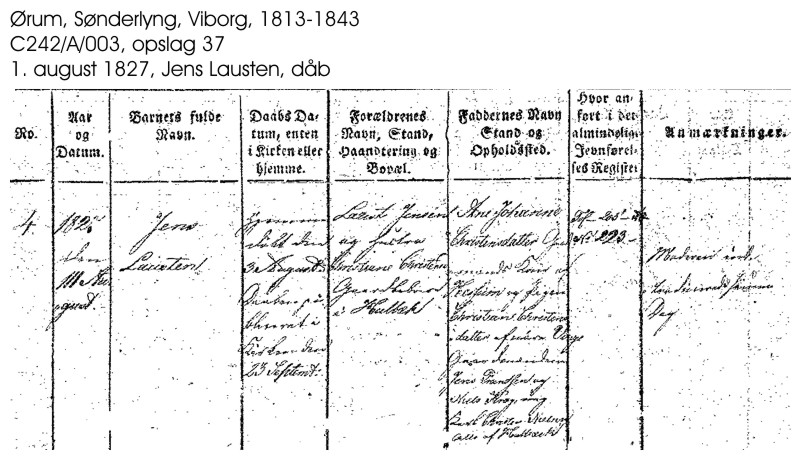 Ørum, Sønderlyng, Viborg, 1813-1843
C242/A/003, opslag 37
1. august 1827, Jens Lausten, dåb
No.
Aar
og
Datum.
Barnets fulde
Navn.
Daabs Da-
tum, enten
i Kirken eller
hjemme.
Forældrenes
Navn, Stand,
Haandtering og
Bopæl.
Faddernes Navn
Stand og
Opholdssted.
Hvor an-
ført i det
almindelige
Jevnførel-
ses Register
Anmærkninger.
4.
182
den
Au
gust
Jens
Lausten
hjemme
døbt den
3 August
Daaben pu-
bliceret i
Kirken den
23 Septembr
Laust Jensen
og Hustru
Christiane Christens
Gaardbeboer
i Hulbæk
Ane Johanne
Christensdatter
mands Kone af
og Pigen
Christiane Christens
datter af
Gaardmændene
Jens Frandsen og
Niels Krog, ung
Karl Christen Nielsen
alle af Hulbæk
No 223
Moderen
Dag